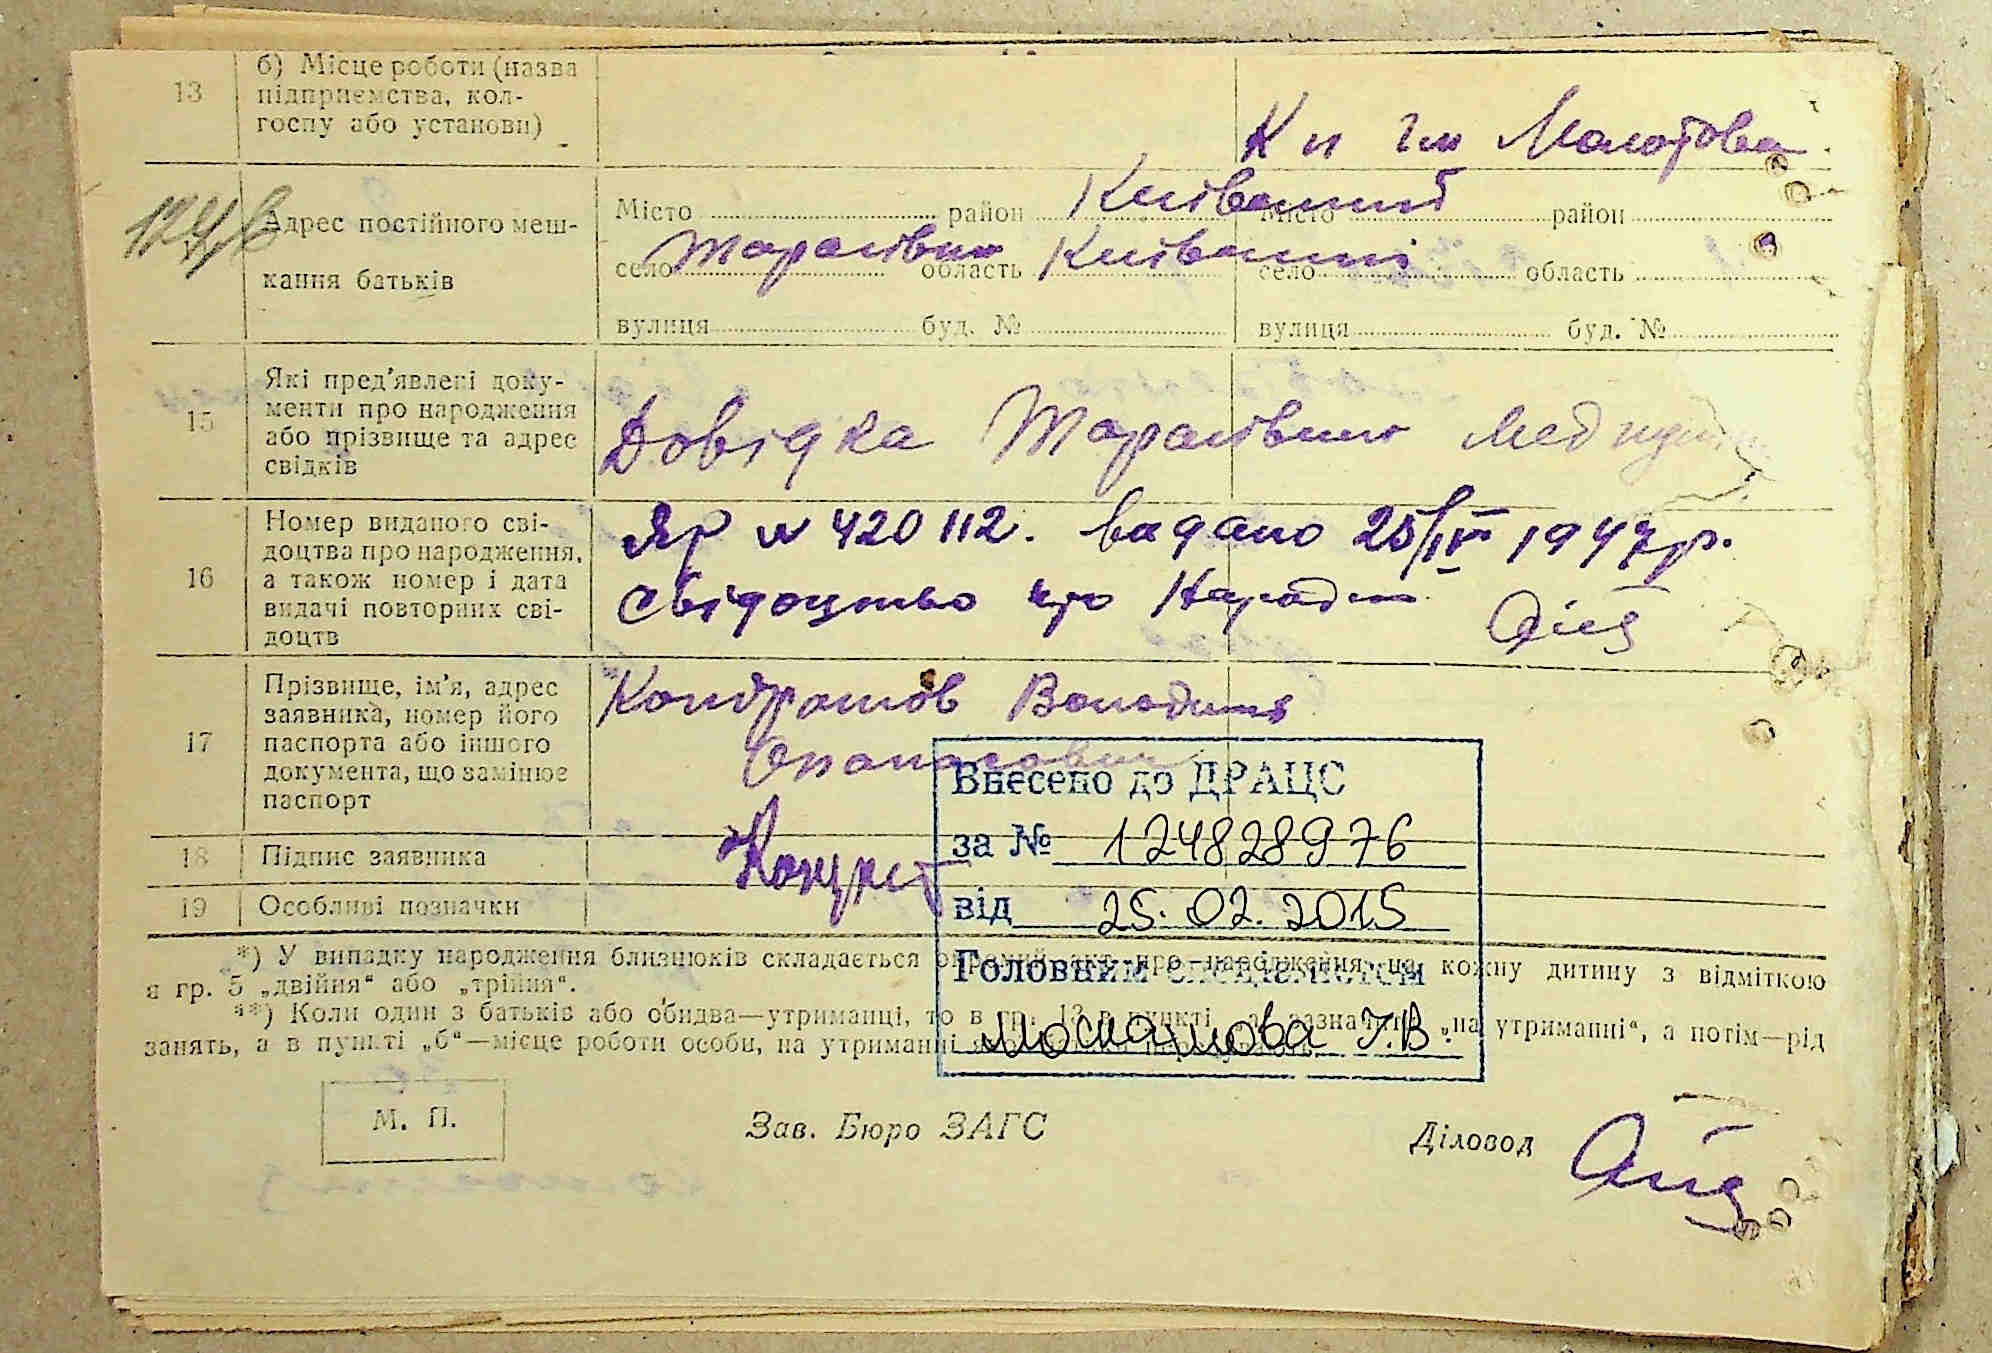 13
б) Місце роботи (назва
підприємства, кол-
госпу або установи)
К п Ім Молотова
Адрес постійного меш-
кання батьків
Місто район Київський
село Тарасівка область Київській
вулиця буд. №
Місто район
село область
вулиця буд. №
15
Які пред'явлені доку-
менти про народження
або прізвище та адрес
свідків
Довідка Тарасівки Мед
16
Номер виданого сві-
доцтва про народження,
а також номер і дата
видачі повторних сві-
доцтв
Яр № 420112. видано 25/IV 1947 р.
Свідоцтво про Народж
17
Прізвище, ім'я, адрес
заявника, номер його
паспорта або іншого
документа, що замінює
паспорт
Кондрашов Володимир
Опанасович
18
Підпис заявника
19
Особливі позначки
Внесено до ДРАЦС
за № 124828976
від 25.02.2015
Головним спеціалістом
І.В.
*) У випадку народження близнюків складається окремий акт про народження на кожну дитину з відміткою
в гр. 5 „двійня“ або „трійня“.
**) Коли один з батьків або обидва—утриманці, то в гр. 13 в пункті „а“ зазначати „на утриманні“, а потім—рід
занять, а в пункті „б“—місце роботи особи, на утриманні
М. П.
Зав. Бюро ЗАГС
Діловод